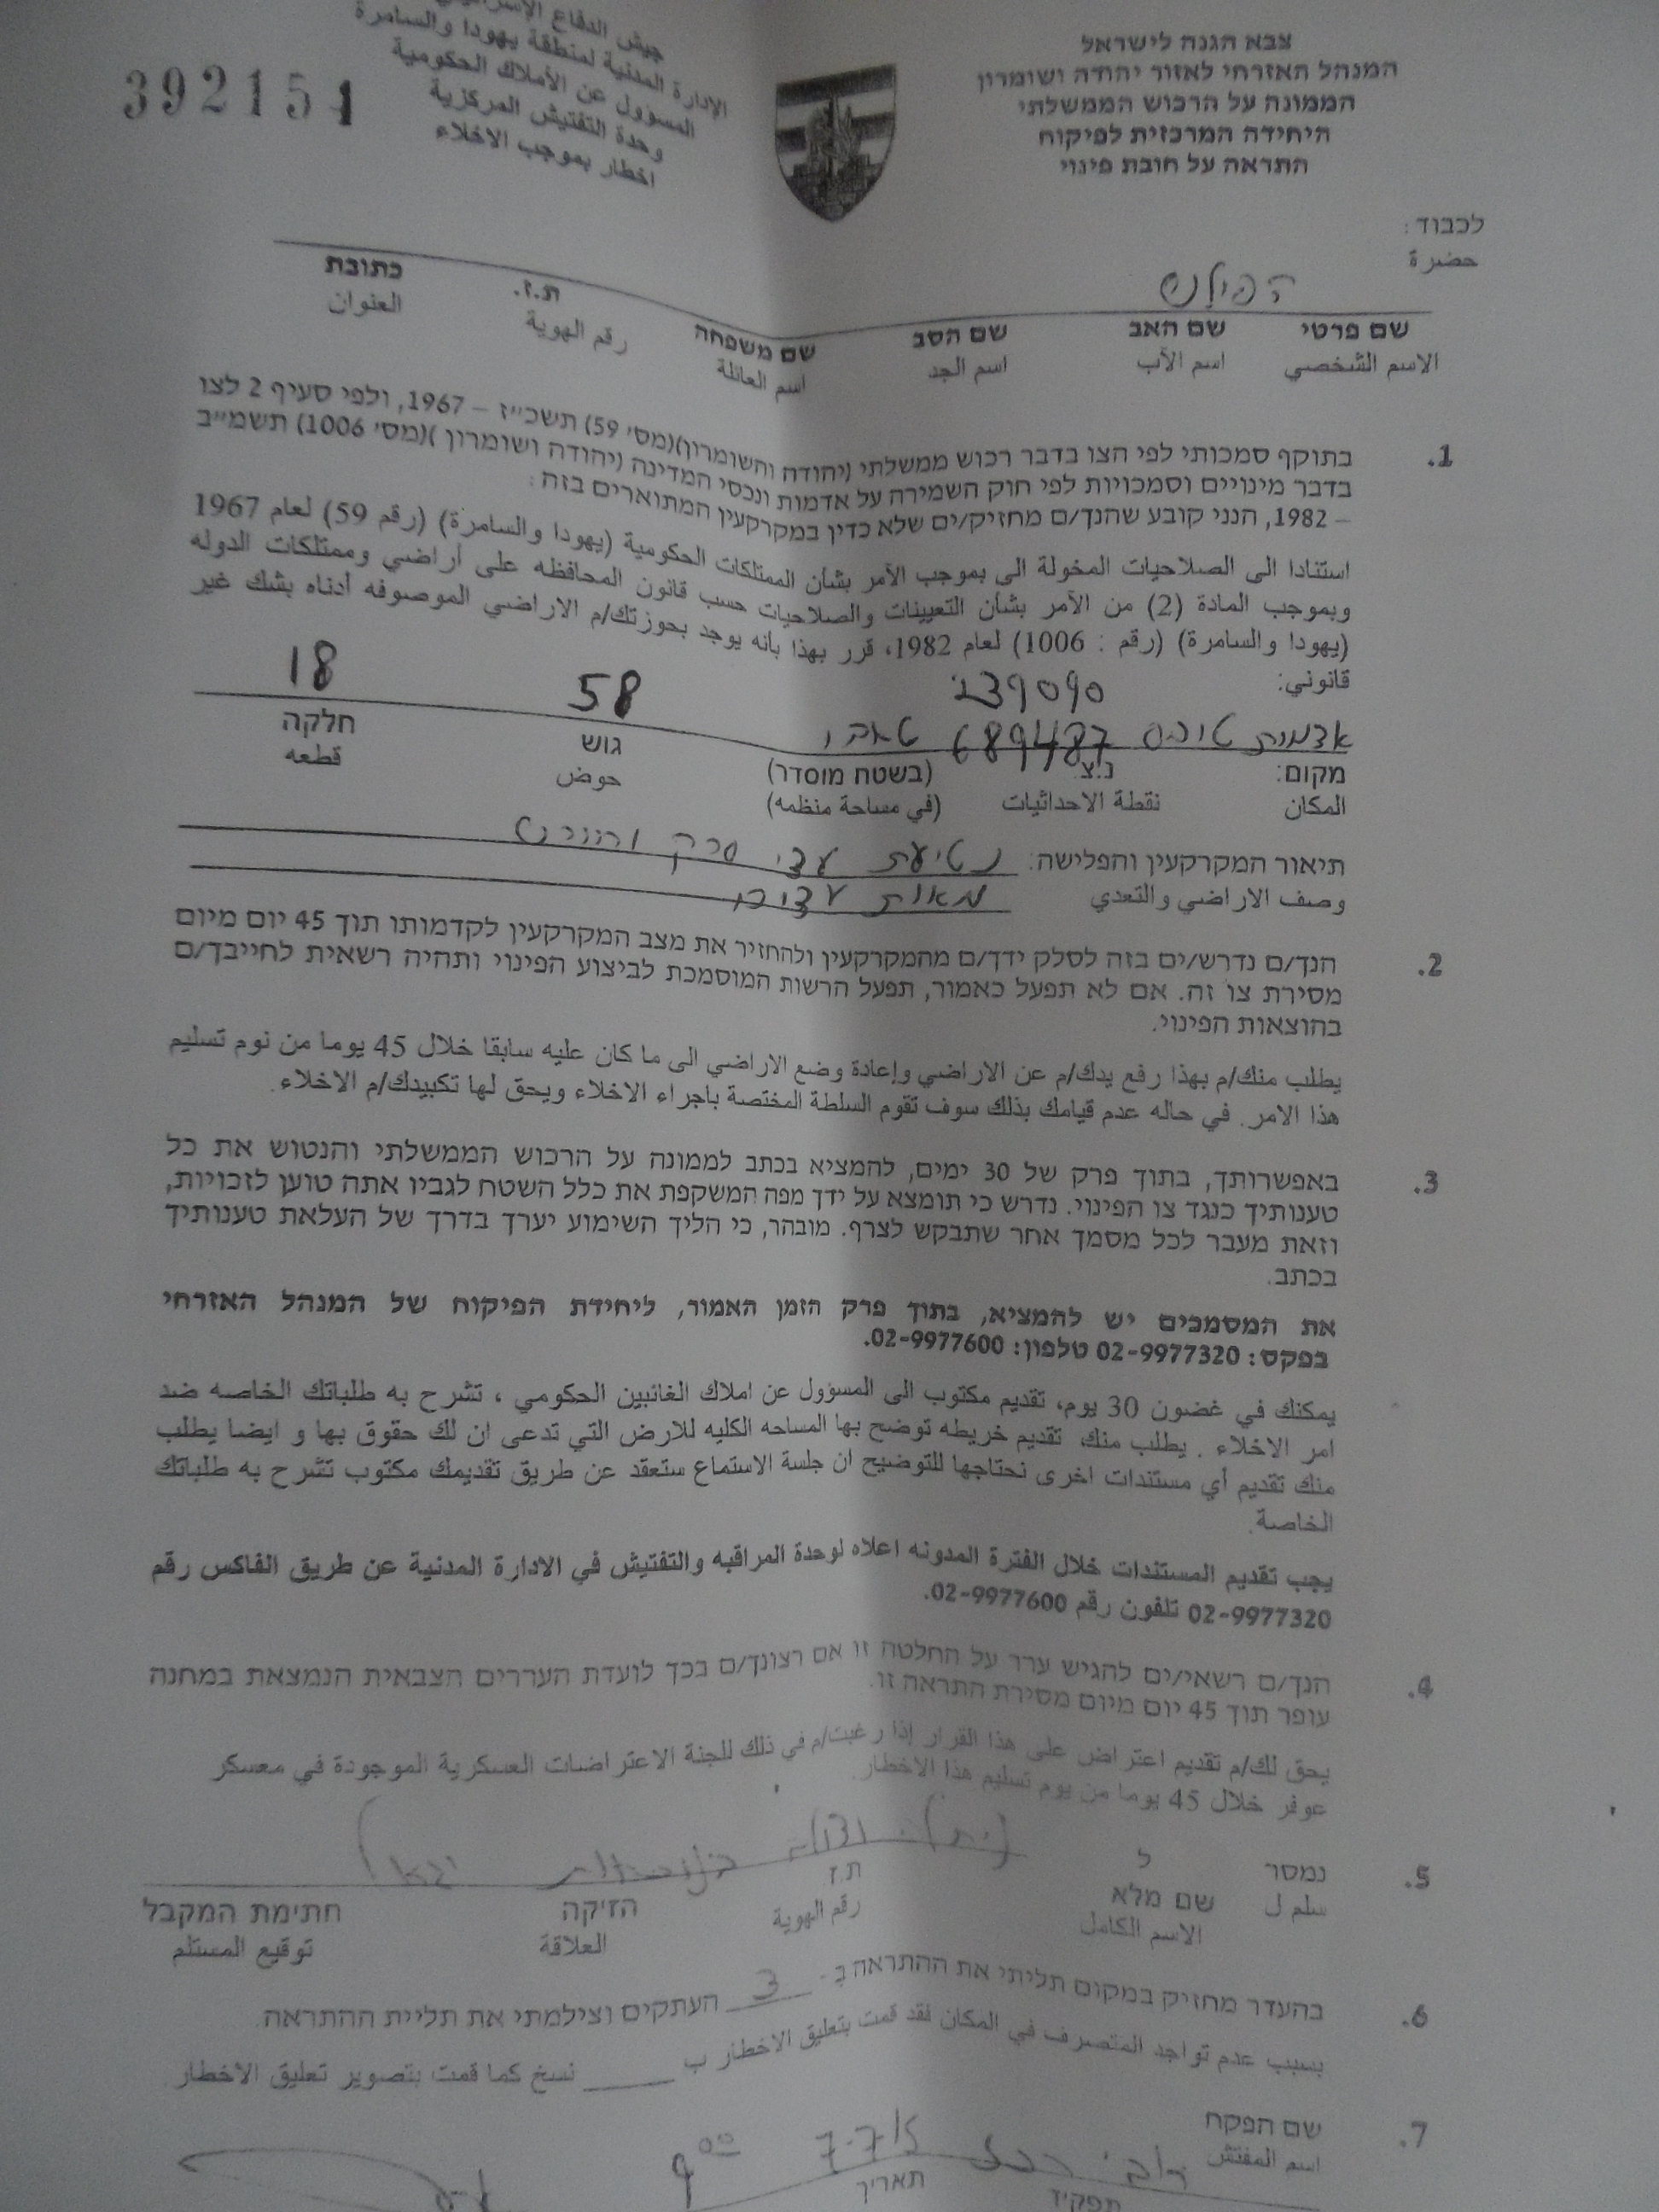 392151
جيش الدفاع
الإدارة المدنية لمنطقة يهودا والسامرة
المسؤول عن الأملاك الحكومية
وحدة التفتيش المركزية
اخطار بموجب الاخلاء
צבא הגנה לישראל
המנהל האזרחי לאזור יהודה ושומרון
הממונה על הרכוש הממשלתי
היחידה המרכזית לפיקוח
התראה על חובת פינוי
לכבוד :
حضرة
הפולש
שם פרטי שם האב שם הסב שם משפחה ת.ז. כתובת
الاسم الشخصي اسم الآب اسم الجد اسم العائلة رقم الهوية العنوان
1. בתוקף סמכותי לפי הצו בדבר רכוש ממשלתי (יהודה והשומרון)(מס' 59) תשכ"ז – 1967, ולפי סעיף 2 לצו
בדבר מינויים וסמכויות לפי חוק השמירה על אדמות ונכסי המדינה (יהודה ושומרון )(מס' 1006) תשמ"ב
– 1982, הנני קובע שהנך/ם מחזיק/ים שלא כדין במקרקעין המתוארים בזה :
استنادا الى الصلاحيات المخولة الى بموجب الأمر بشأن الممتلكات الحكومية (يهودا والسامرة) (رقم 59) لعام 1967
وبموجب المادة (2) من الأمر بشأن التعيينات والصلاحيات حسب قانون المحافظه على أراضي وممتلكات الدوله
(يهودا والسامرة) (رقم : 1006) لعام 1982، قرر بهذا بانه يوجد بحوزتك/م الاراضي الموصوفه أدناه بشك غير
قانوني:
239090
אדמות טובס 689487 טאבו 58 18
מקום: נ.צ. (בשטח מוסדר) גוש חלקה
المكان نقطة الاحداثيات (في مساحة منظمه) حوض قطعه
תיאור המקרקעין והפלישה: נטיעת עצי סרק
وصف الاراضي والتعدي מאות עצים
2. הנך/ם נדרש/ים בזה לסלק ידך/ם מהמקרקעין ולהחזיר את מצב המקרקעין לקדמותו תוך 45 יום מיום
מסירת צו זה. אם לא תפעל כאמור, תפעל הרשות המוסמכת לביצוע הפינוי ותהיה רשאית לחייבך/ם
בהוצאות הפינוי.
يطلب منك/م بهذا رفع يدك/م عن الاراضي وإعادة وضع الاراضي الى ما كان عليه سابقا خلال 45 يوما من نوم تسليم
هذا الامر. في حاله عدم قيامك بذلك سوف تقوم السلطة المختصة باجراء الاخلاء ويحق لها تكبيدك/م الاخلاء.
3. באפשרותך, בתוך פרק של 30 ימים, להמציא בכתב לממונה על הרכוש הממשלתי והנטוש את כל
טענותיך כנגד צו הפינוי. נדרש כי תומצא על ידך מפה המשקפת את כלל השטח לגביו אתה טוען לזכויות,
וזאת מעבר לכל מסמך אחר שתבקש לצרף. מובהר, כי הליך השימוע יערך בדרך של העלאת טענותיך
בכתב.
את המסמכים יש להמציא, בתוך פרק הזמן האמור, ליחידת הפיקוח של המנהל האזרחי
בפקס: 02-9977320 טלפון: 02-9977600.
يمكنك في غضون 30 يوم، تقديم مكتوب الى المسؤول عن املاك الغائبين الحكومي ، تشرح به طلباتك الخاصه ضد
امر الاخلاء . يطلب منك تقديم خريطه توضح بها المساحه الكليه للارض التي تدعى ان لك حقوق بها و ايضا يطلب
منك تقديم أي مستندات اخرى نحتاجها للتوضيح ان جلسة الاستماع ستعقد عن طريق تقديمك مكتوب تشرح به طلباتك
الخاصة.
يجب تقديم المستندات خلال الفترة المدونه اعلاه لوحدة المراقبه والتفتيش في الادارة المدنية عن طريق الفاكس رقم
02-9977320 تلفون رقم 02-9977600.
4. הנך/ם רשאי/ים להגיש ערר על החלטה זו אם רצונך/ם בכך לועדת העררים הצבאית הנמצאת במחנה
עופר תוך 45 יום מיום מסירת התראה זו.
يحق لك/م تقديم اعتراض على هذا القرار إذا رغبت/م في ذلك للجنة الاعتراضات العسكرية الموجودة في معسكر
عوفر خلال 45 يوما من يوم تسليم هذا الاخطار.
5. נמסר ל
سلم ل שם מלא ת.ז הזיקה חתימת המקבל
الاسم الكامل رقم الهوية العلاقة توقيع المستلم
6. בהעדר מחזיק במקום תליתי את ההתראה ב- 3 העתקים וצילמתי את תליית ההתראה.
بسبب عدم تواجد المتصرف في المكان فقد قمت بتعليق الاخطار ب ____ نسخ كما قمت بتصوير تعليق الاخطار.
7. שם הפקח 7-7-15 9 00
اسم المفتش תפקיד תאריך